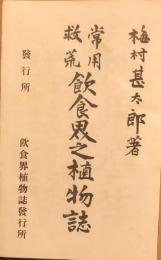 梅村甚太郎著
常用
救荒
飲食界之植物誌
發行所
飲食界植物誌發行所